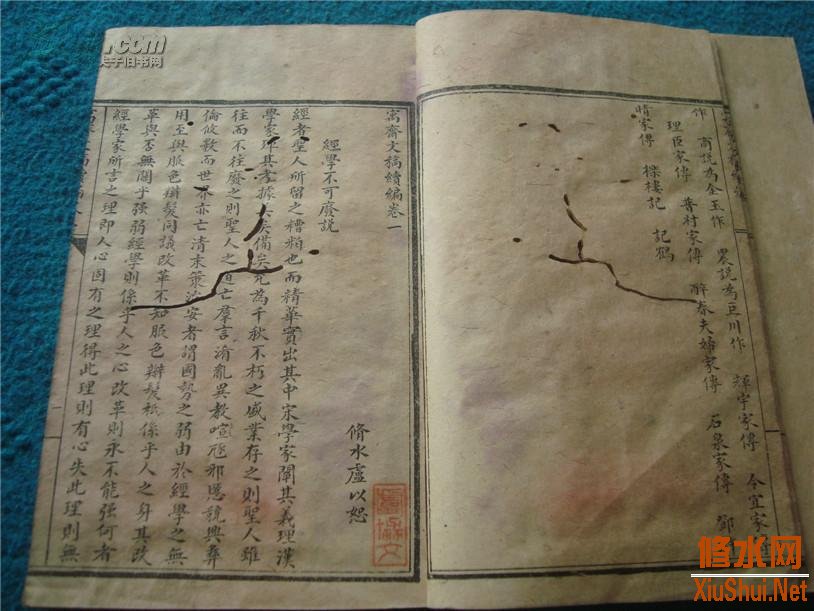 作
商説為金玉作
農説為巨川作
輝宇家傳
令宜家
理臣家傳
晋村家傳
醉春夫婦家傳
石泉家傳
鄧
晴家傳
樸樓記
記鶴
寓齋文稿續編卷一
脩水盧以恕
經學不可廢説
經者聖人所留之糟粕也而精華實出其中宋學家闡其義理漢
學家 其考據 矣備矣 為千秋不朽之盛業存之則聖人雖
往而不往廢之則聖人之道亡羣言淆亂異教喧 邪慝競興彝
倫攸斁而世界亦亡清末策治安者謂國勢之弱由於經學之無
用至與服色辮髮同議改革不知服色辮髮衹係乎人之身其改
革與否無關乎强弱經學則係乎人之心改革則永不能强何者
經學家所言之理即人心固有之理得此理則有心失此理則無
修水网
XiuShui.Net
.com
夫子旧书网